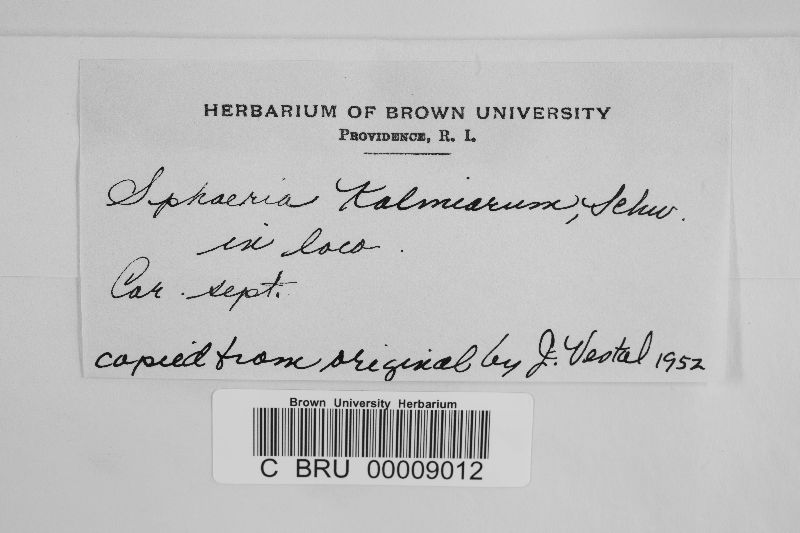 HERBARIUM OF BROWN UNIVERSITY
PROVIDENCE, R. I.
Sphaeria Kalmiarum, Schw.
in loco.
Car. sept.
copied from original by J. Vestal 1952
Brown University Herbarium
C BRU 00009012